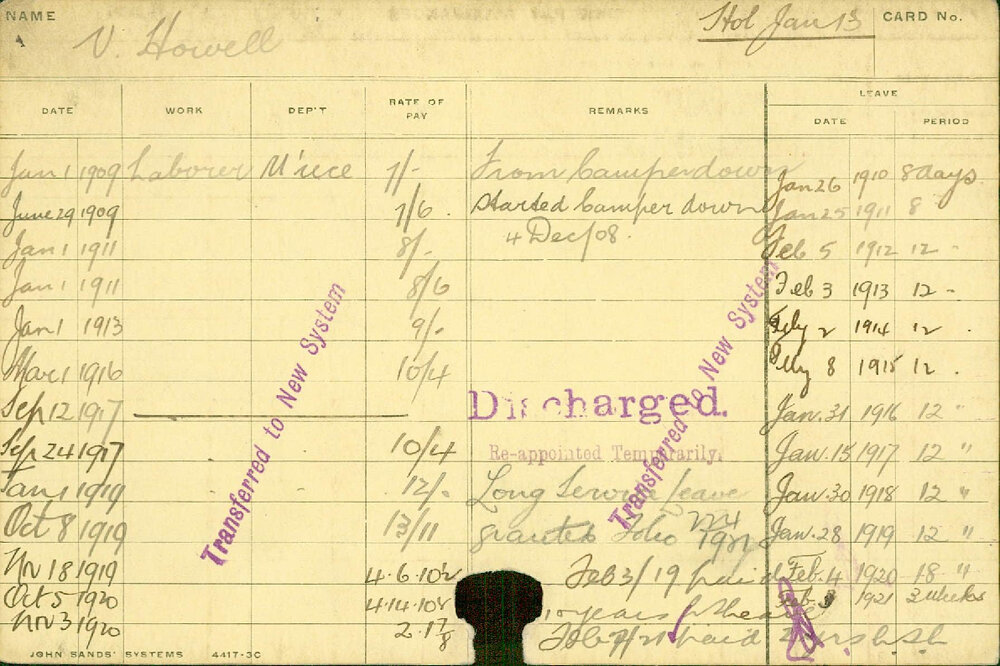 NAME
V. Howell
Hol Jan 13
CARD No.
DATE WORK DEP'T RATE OF PAY REMARKS LEAVE
DATE PERIOD
Jan 1 1909 Laborer M'ice 7/- From Camperdown Jan 26 1910 8 days
June 29 1909 7/6 Started Camperdown Jan 25 1911 8
4 Dec/08.
Jan 1 1911 8/- Feb 5 1912 12 -
Jan 1 1911 8/6 Feb 3 1913 12 -
Jan 1 1913 9/- 2 1914 12
Mar 1 1916 10/4 8 1915 12
Sep 12 1917 Discharged. Jan. 31 1916 12 "
Sep 24 1917 10/4 Re-appointed Temporarily. Jan. 15 1917 12 "
Jan 1 1919 12/- Long Service leave Jan. 30 1918 12 "
Oct 8 1919 13/11 granted Folio Jan. 28 1919 12 "
Nov 18 1919 4.6.10½ Feb 3/19 paid Feb. 4 1920 18 "
Oct 5 1920 4.14.10½ 10 years 1921 2 weeks
Nov 3 1920 2.17/8 paid
Transferred to New System
Transferred to New System
JOHN SANDS' SYSTEMS 4417-3C